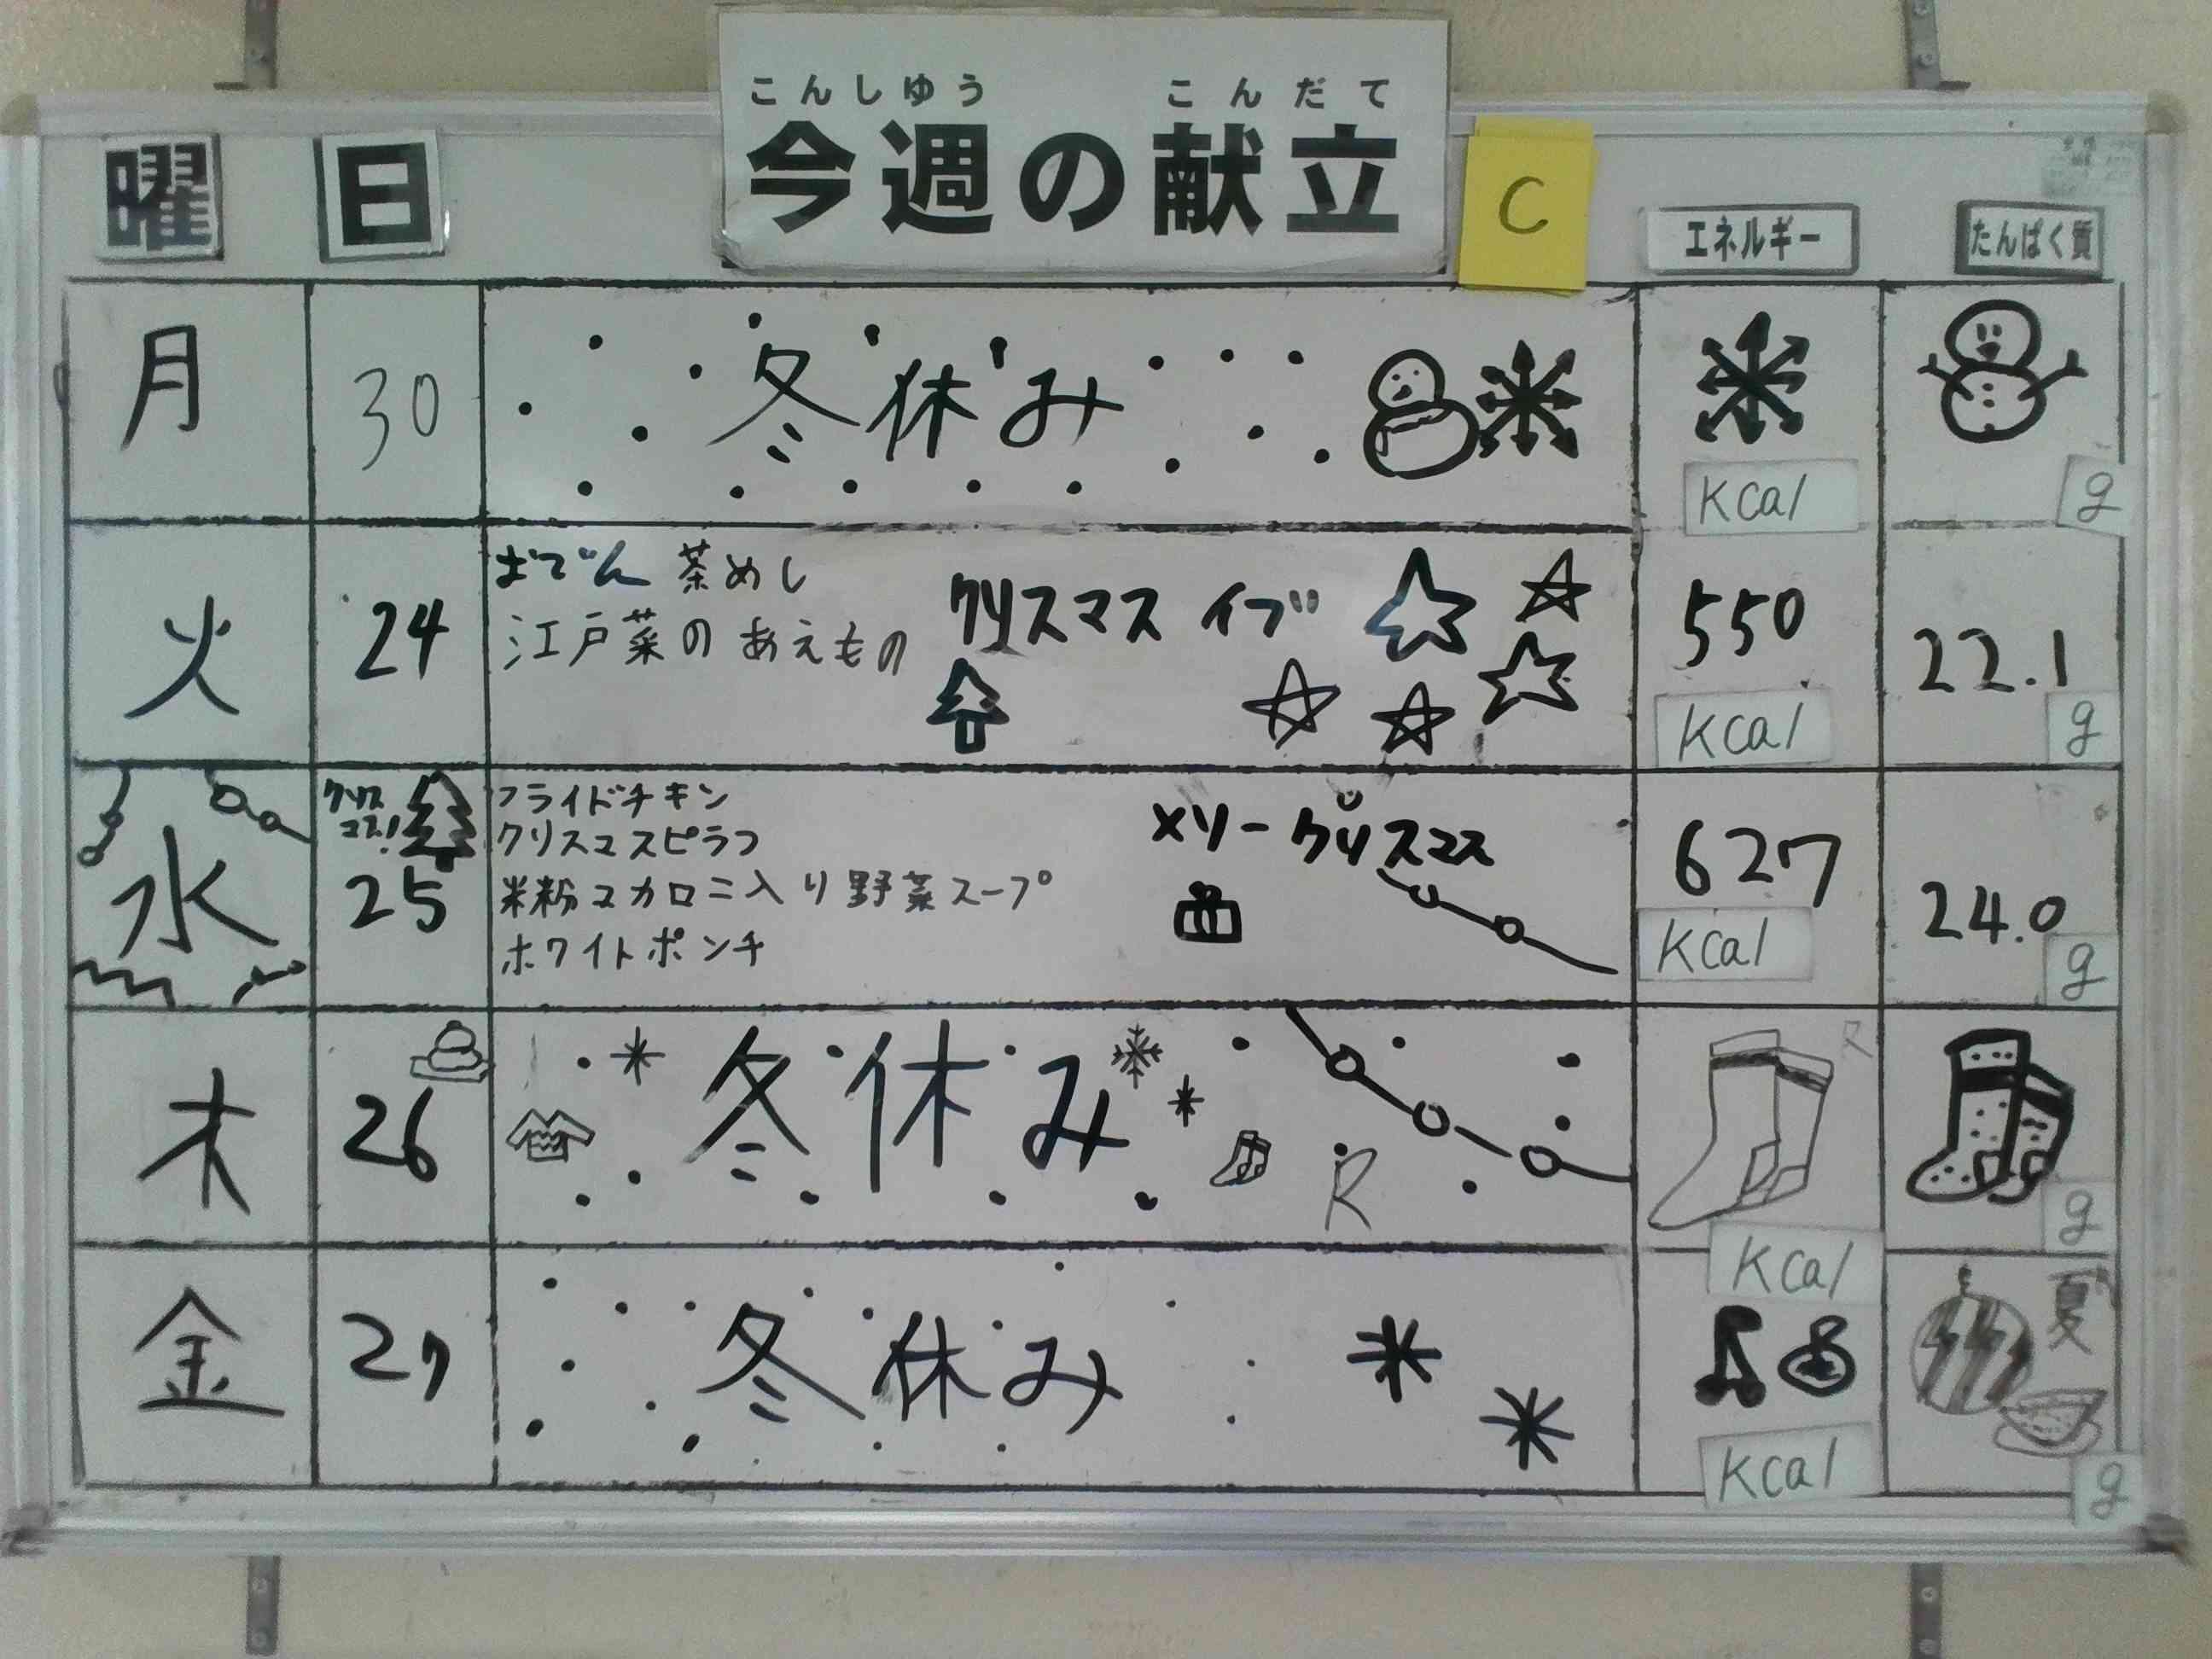 こんしゆう こんだて
今週の献立
C
曜 日 エネルギー たんぱく質
月 30 冬休み Kcal g
火 24 おでん 茶めし
江戸菜の あえもの
クリスマス イブ
550 Kcal 22.1 g
水 クリスマス!
25
フライドチキン
クリスマスピラフ
米粉マカロニ入り野菜スープ
ホワイトポンチ
メリークリスマス
627 Kcal 24.0 g
木 26 冬休み R R Kcal g
金 27 冬休み Kcal 夏 g